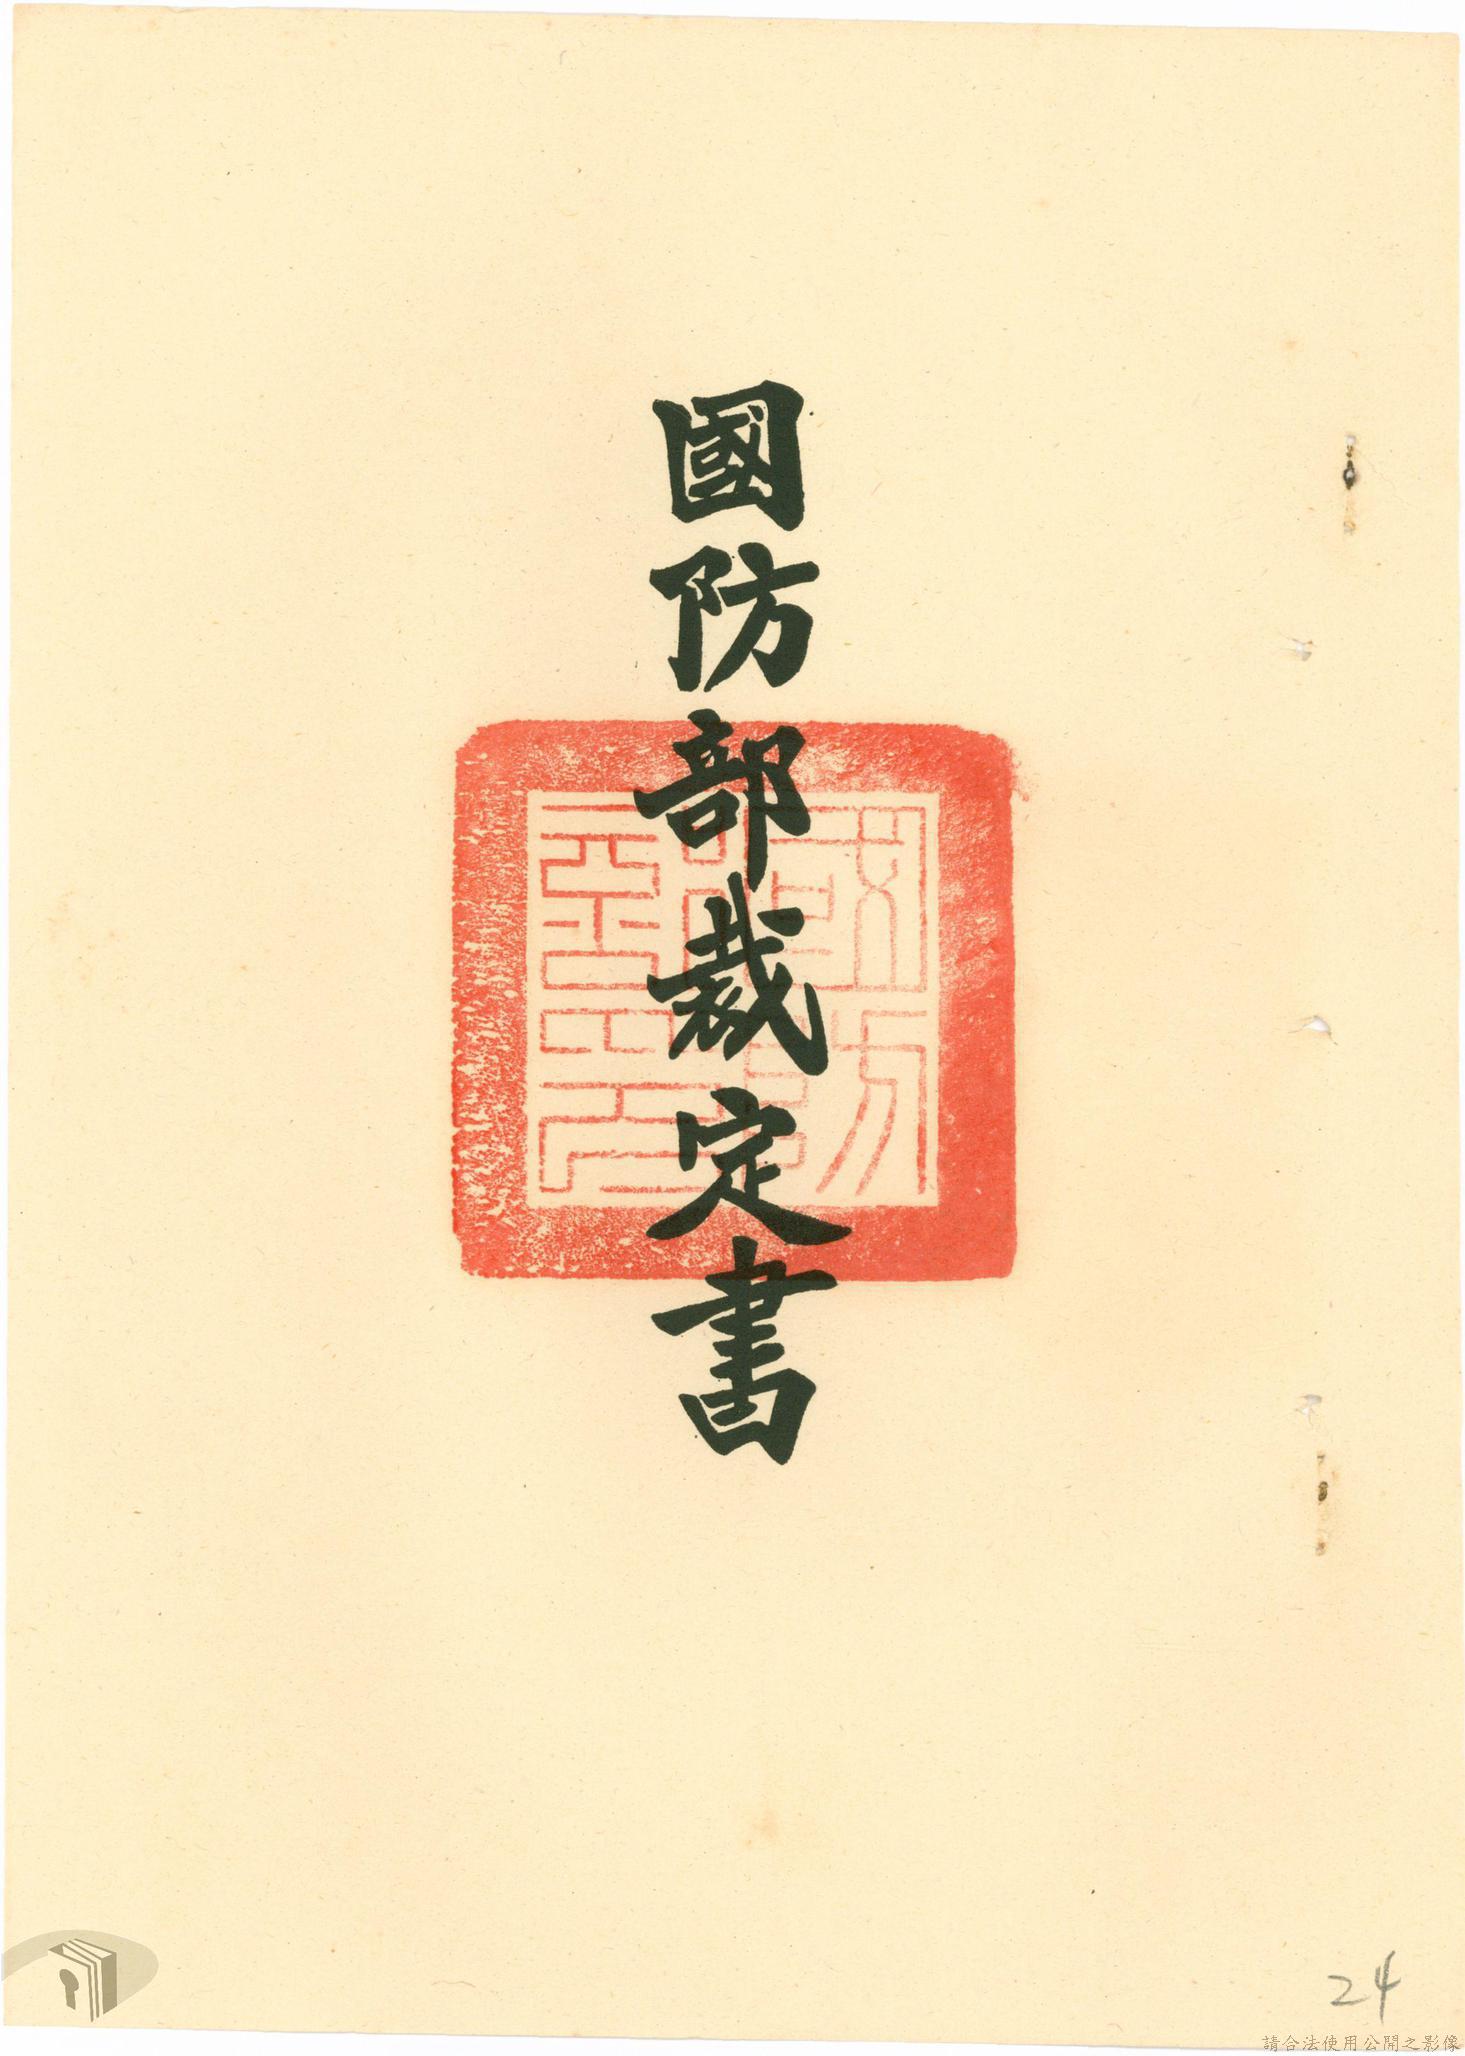 國防部裁定書
24
請合法使用公開之影像